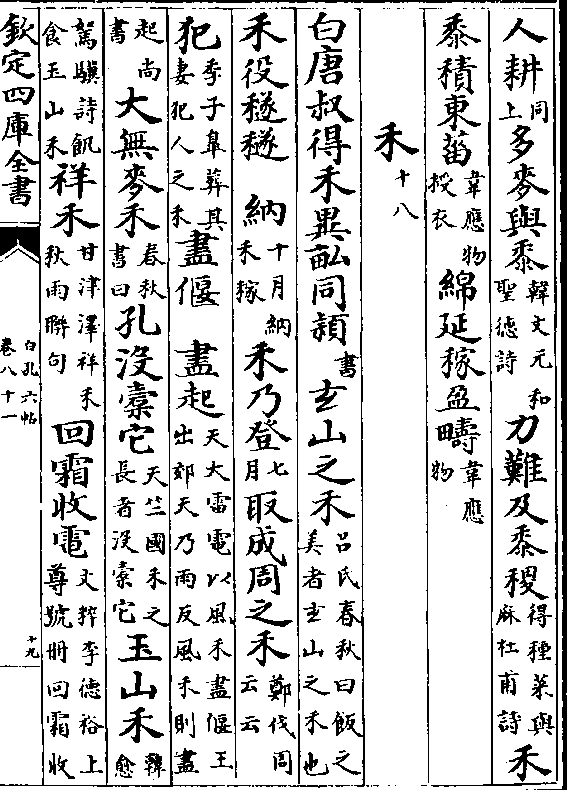 人耕同上多麥與黍韓文元和聖德詩力難及黍稷得種菜與麻杜甫詩禾
黍積東菑韋應物授衣綿延稼盈疇韋應物
禾十八
白唐叔得禾異畝同穎書玄山之禾呂氏春秋曰飯之美者玄山之禾也
禾役穟穟納十月納禾稼禾乃登七月取成周之禾鄭伐周云云
犯季子臯葬其妻犯人之禾盡偃盡起天大雷電以風禾盡偃王出郊天乃雨反風禾則盡
起尚書大無麥禾春秋書曰孔沒橐它天竺國禾之長者沒橐它玉山禾韓愈
駕驥詩飢食玉山禾祥禾甘津澤祥禾秋雨聯句回霜收電文粹李德裕上尊號冊回霜收
欽定四庫全書
白孔六帖
卷八十一
十九